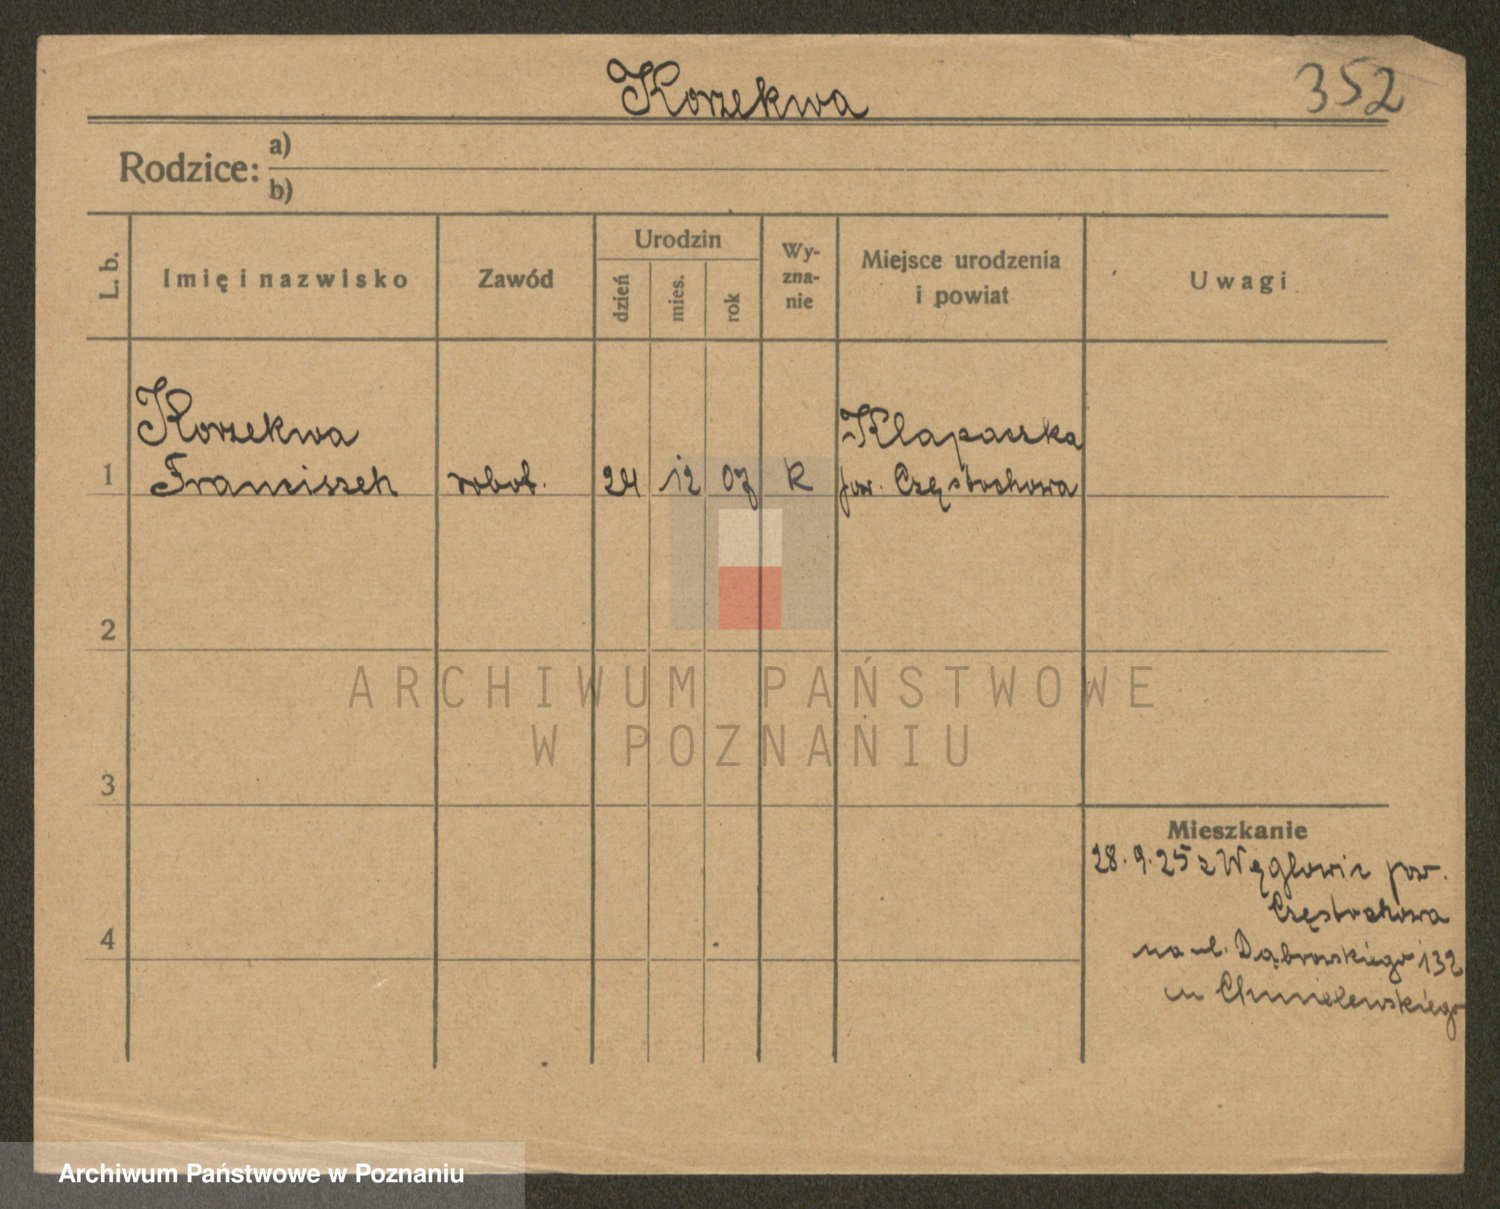 Korzekwa
352
Rodzice: a)
b)
L. b.
Imię i nazwisko
Zawód
Urodzin
dzień
mies.
rok
Wy-
zna-
nie
Miejsce urodzenia
i powiat
Uwagi
1
Korzekwa
Franciszek
robot.
24
12
07
k
Klapaczka
pow. Częstochowa
2
3
4
Mieszkanie
28.9.25 z Węglowic pow.
Częstochowa
na ul. Dąbrowskiego 132
u Chmielewskiego
ARCHIWUM PAŃSTWOWE
W POZNANIU
Archiwum Państwowe w Poznaniu